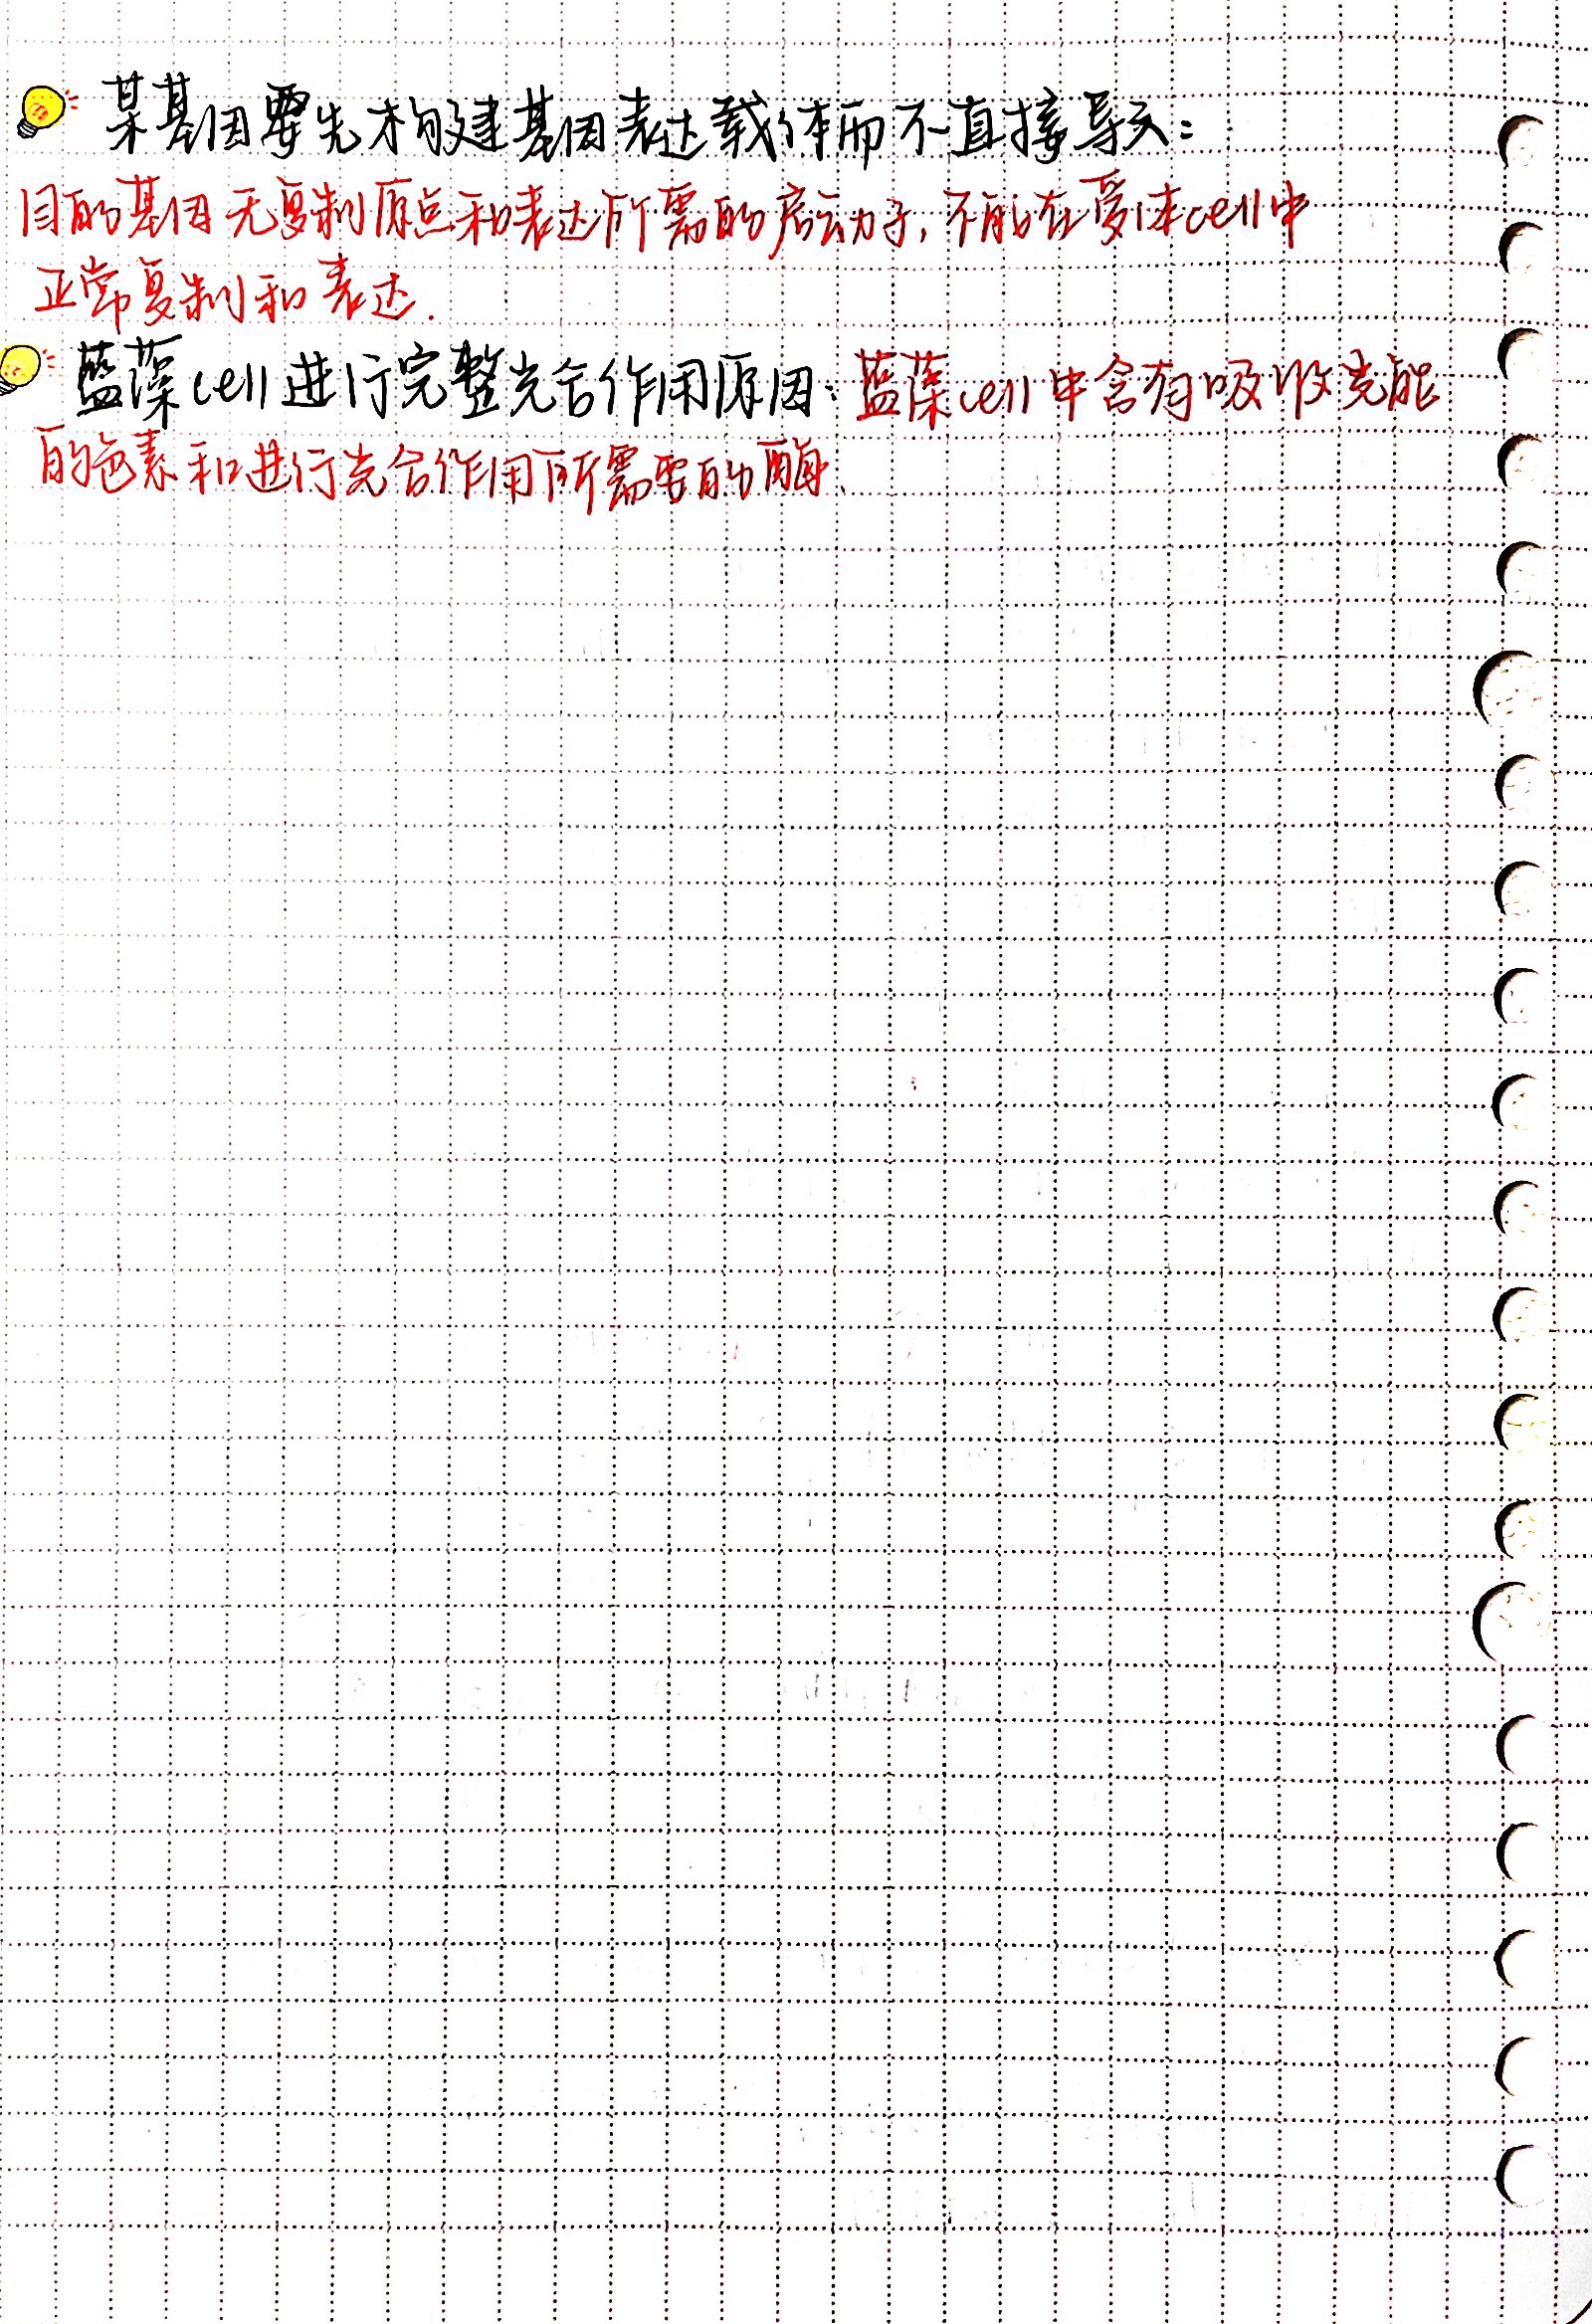 某基因要先构建基因表达载体而不直接导入:
目的基因无复制原点和表达所需的启动子,不能在受体cell中
正常复制和表达.
蓝藻cell进行完整光合作用原因:蓝藻cell中含有吸收光能
的色素和进行光合作用所需要的酶.